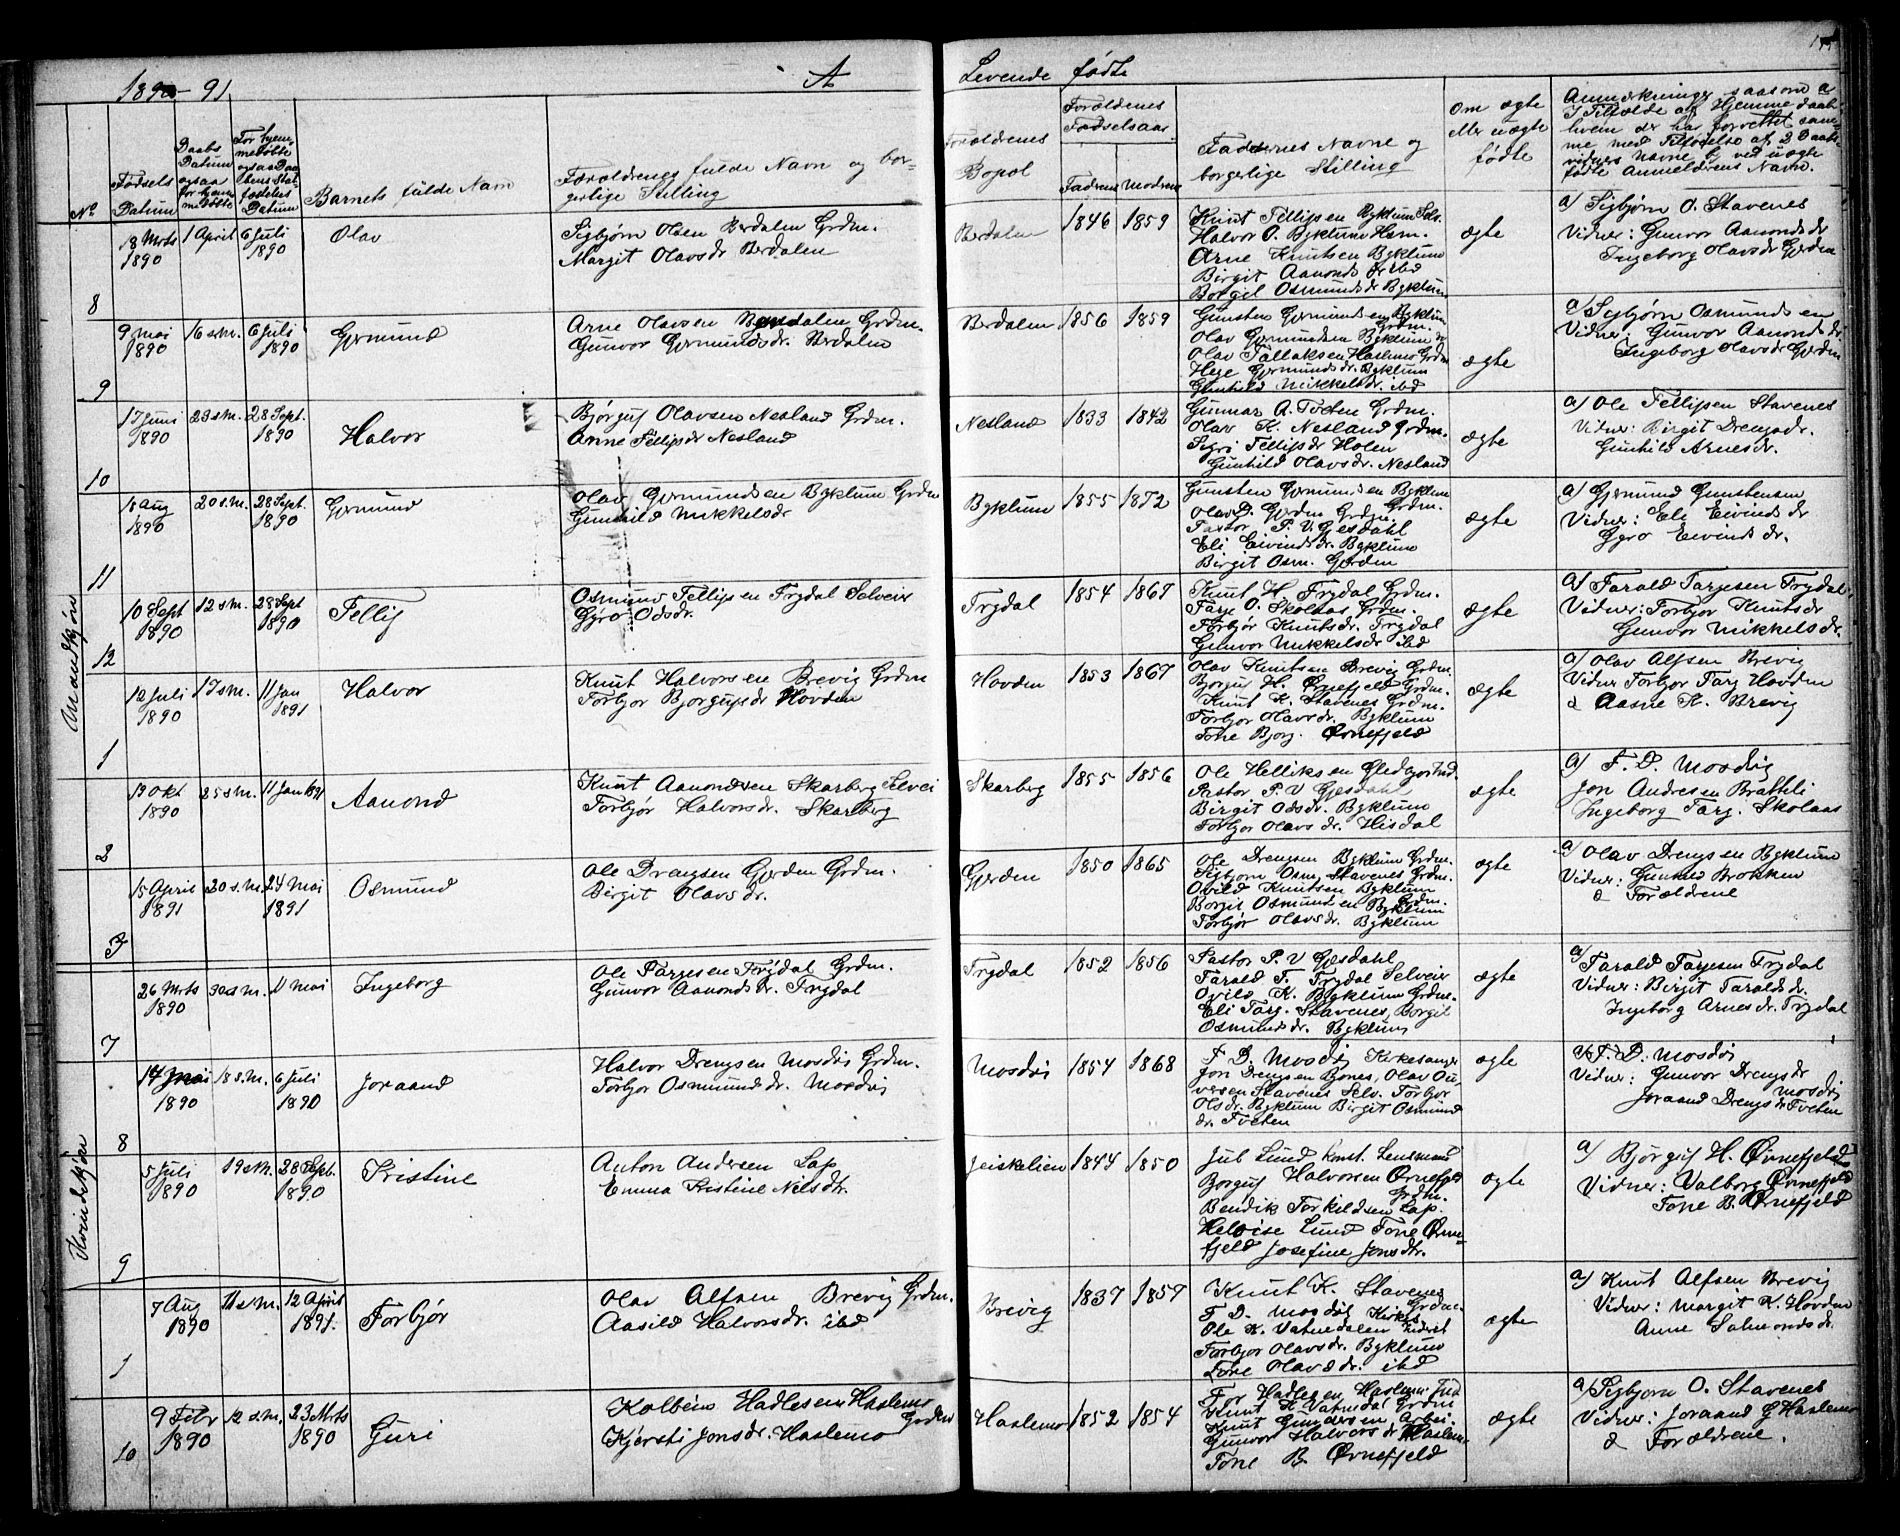 1890 91
A
Levende fødte
No
Fødsels Datum
Daabs Datum ogsaa for hjemmedøbte
For hjemmedøbte ogsaa Daabens Stadfæstelses Datum
Barnets fulde Navn
Forældrenes fulde Navn og borgerlige Stilling
Forældrenes Bopæl
Forældrenes Fødselsaar
Fadrens Modrens
Faddernes Navne og borgerlige Stilling
Om ægte eller uægte fødte
Anmærkninger saasom a
I Tilfælde af Hjemmedaab
hvem der har forrettet samme
med Tilføielse af 2 Daabs
vidners Navne b, ved uægte
fødte Anmelderens Navn.
Mandkjøn
8
18 Mrts 1890
1 April
6 Juli 1890
Olav
Sigbjørn Olsen Berdalen Grdm.
Margit Olavsdr Berdalen
Berdalen
1846 1859
Knut Fellipsen Byklum Selv.
Halvor O. Byklum Hsm.
Arne Knutsen Byklum
Birgit Aanondsdr ibd
Borgil Osmundsdr Byklum
ægte
a) Sigbjørn O. Stavenes
Vidner: Gunvor Aanondsdr
Ingeborg Olavsdr Gjerden
9
9 Mai 1890
16 s.M.
6 Juli 1890
Gjermund
Arne Olavsen Berdalen Grdm.
Gunvor Gjermundsdr. Berdalen
Berdalen
1856 1859
Gunsten Gjermundsen Byklum
Grdm.
Olav Gjermundsen Byklum
Olav Tallaksen Haslemo Grdm
Hege Gjermundsdr. Byklum
Gunhild Mikkelsdr. ibd
ægte
a) Sigbjørn Osmundsen
Vidner: Gunvor Aanondsdr
Ingeborg Olavsdr Gjerden
10
17 Juni 1890
23 s.M.
28 Sept. 1890
Halvor
Bjørguf Olavsen Nesland Grdm.
Anne Fellipsdr Nesland
Nesland
1833 1842
Gunnar A. Tveten Grdm.
Olav K. Nesland Grdm.
Sigri Fellipsdr Holen
Gunhild Olavsdr. Nesland
ægte
a) Ole Fellipsen Stavenes
Vidner: Birgit Drengsdr.
Gunhild Arnesdr.
11
18 Aug 1890
20 s.M.
28 Sept. 1890
Gjermund
Olav Gjermundsen Byklum Grdm
Gunhild Mikkelsdr
Byklum
1855 1852
Gunsten Gjermundsen Byklum
Olav D. Gjerden Grdm.
Pastor P. V. Gjesdahl
Eli Eivindsdr. Byklum
Birgit Osm. Gjerden
ægte
a) Gjermund Gunstensen
Vidner: Eli Eivindsdr
Gyro Eivindsdr.
12
10 Sept 1890
12 s.M.
28 Sept 1890
Fellif
Osmund Fellipsen Trydal Selveier
Gyro Odsdr.
Trydal
1854 1867
Knut H. Trydal Grdm.
Targe O. Skolaas Grdm.
Torbjør Knutsdr. Trydal
Gunvor Mikkelsdr ibd
ægte
a) Tarald Targesen Trydal
Vidner: Torbjør Knutsdr
Gunvor Mikkelsdr.
1
12 Juli 1890
17 s.M.
11 Jan 1891
Halvor
Knut Halvorsen Brevig Grdm
Torbjør Bjorgufsdr Hovden
Hovden
1853 1867
Olav Knutsen Brevig Grdm.
Borguf H. Ørnefjeld Grdm.
Knut K. Stavenes Grdm.
Torbjor Olavsdr. Byklum
Tone Bjorg. Ørnefjeld
ægte
a) Olav Alfsen Brevig
Vidner Torbjor Targ. Hovden
& Aasne K. Brevig
2
19 Okt 1890
25 s.M.
11 Jan 1891
Aanond
Knut Aanondsen Skarberg Selvei
Torbjør Halvorsdr. Skarberg
Skarberg
1855 1856
Ole Helliksen
Pastor P. V Gjesdahl
Birgit Odsdr. Byklum
Torbjor Olavsdr. Hisdal
ægte
a) T. D. Mosdøi
Jon Andresen Bratteli
Ingeborg Targ. Skolaas
3
15 April 1891
20 s.M.
24 Mai 1891
Osmund
Ole Drengsen Gjerden Grdm.
Birgit Olavsdr.
Gjerden
1850 1865
Ole Drengsen Byklum Grdm.
Sigbjørn Osm. Stavenes Grdm.
Ovild Knutsen Byklum
Grdm.
Borgil Osmundsen Byklum
Torbjør Olavsdr. Byklum
ægte
a) Olav Drengsen Byklum
Vidner: Gunhild Brokken
& Forældrene
Kvindekjøn
7
26 Mrts 1890
30 s.M.
11 Mai
Ingeborg
Ole Targesen Trydal Grdm.
Gunvor Aanondsdr. Trydal
Trydal
1852 1856
Pastor P. V Gjesdahl
Tarald T. Trydal Selveier
Ovild K. Byklum Grdm.
Eli Targ. Stavenes, Borgil
Osmundsdr. Byklum
ægte
a) Tarald Targesen Trydal
Vidner: Birgit Taraldsdr.
Ingeborg Arnesdr. Trydal
8
14 Mai 1890
18 s.M.
6 Juli 1890
Joraand
Halvor Drengsen Mosdøi Grdm.
Torbjor Osmundsdr. Mosdøi
Mosdøi
1854 1868
T. D. Mosdøi Kirkesanger
Jon Drengsen Bjones, Olav Ou-
versen Stavenes Selv. Torbjor
Olsdr. Byklum Birgit Osmund
dr. Tveten
ægte
a) T. D. Mosdøi
Vidner: Gunvor Drengsdr
Mosdøi
Joraand Drengsdr Tveten
9
5 Juli 1890
19 s.M.
28 Sept. 1890
Kristine
Anton Andersen Lap
Emma Kristine Nilsdtr.
Jeiskelien
1844 1850
Jul Lund Konst. Lensmand
Borguf Halvorsen Ørnefjeld
Grdm.
Bendik Torkildsen Lap.
Heloise Lund Tone Ørne-
fjeld Josefine Jonsdtr.
ægte
a) Bjørguf H. Ørnefjeld
Vidner: Valborg Ørnefjeld
Tone B. Ørnefjeld
1
7 Aug 1890
11 s.M.
12 April 1891.
Torbjør
Olav Alfsen Brevig Grdm.
Aasild Halvorsdr. ibd
Brevig
1837 1857
Knut K. Stavenes
Grdm.
T. D. Mosdøi Kirkes.
Ole K. Vatnedalen Inderst
Torbjor Olavsdr. Byklum
Tone Olavsdr. ibd
ægte
a) Knut Alfsen Brevig
Vidner: Margit K. Hovden
Anne Salmondsdr.
10
9 Febr 1890
12 s.M.
23 Mrts 1890
Guri
Kolbein Hadlesen Haslemo
Grdm
Kjersti Jonsdr. Haslemo
Haslemo
1852 1854
Tor Hadlesen Haslemo Ind
Knut K Vatnedal Grdm
Knut Gundersen Arbei.
Gunvor Halvorsdr Haslem.
Tone B. Ørnefjeld
ægte
a) Sigbjorn O. Stavenes
Vidner: Joraand G Haslemo
& Forældrene.